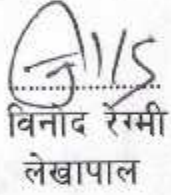 विनोद रेग्मी
लेखापाल